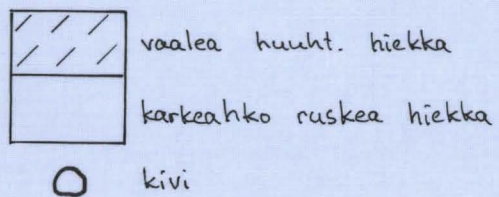 vaalea huuht. hiekka
karkeahko ruskea hiekka
kivi